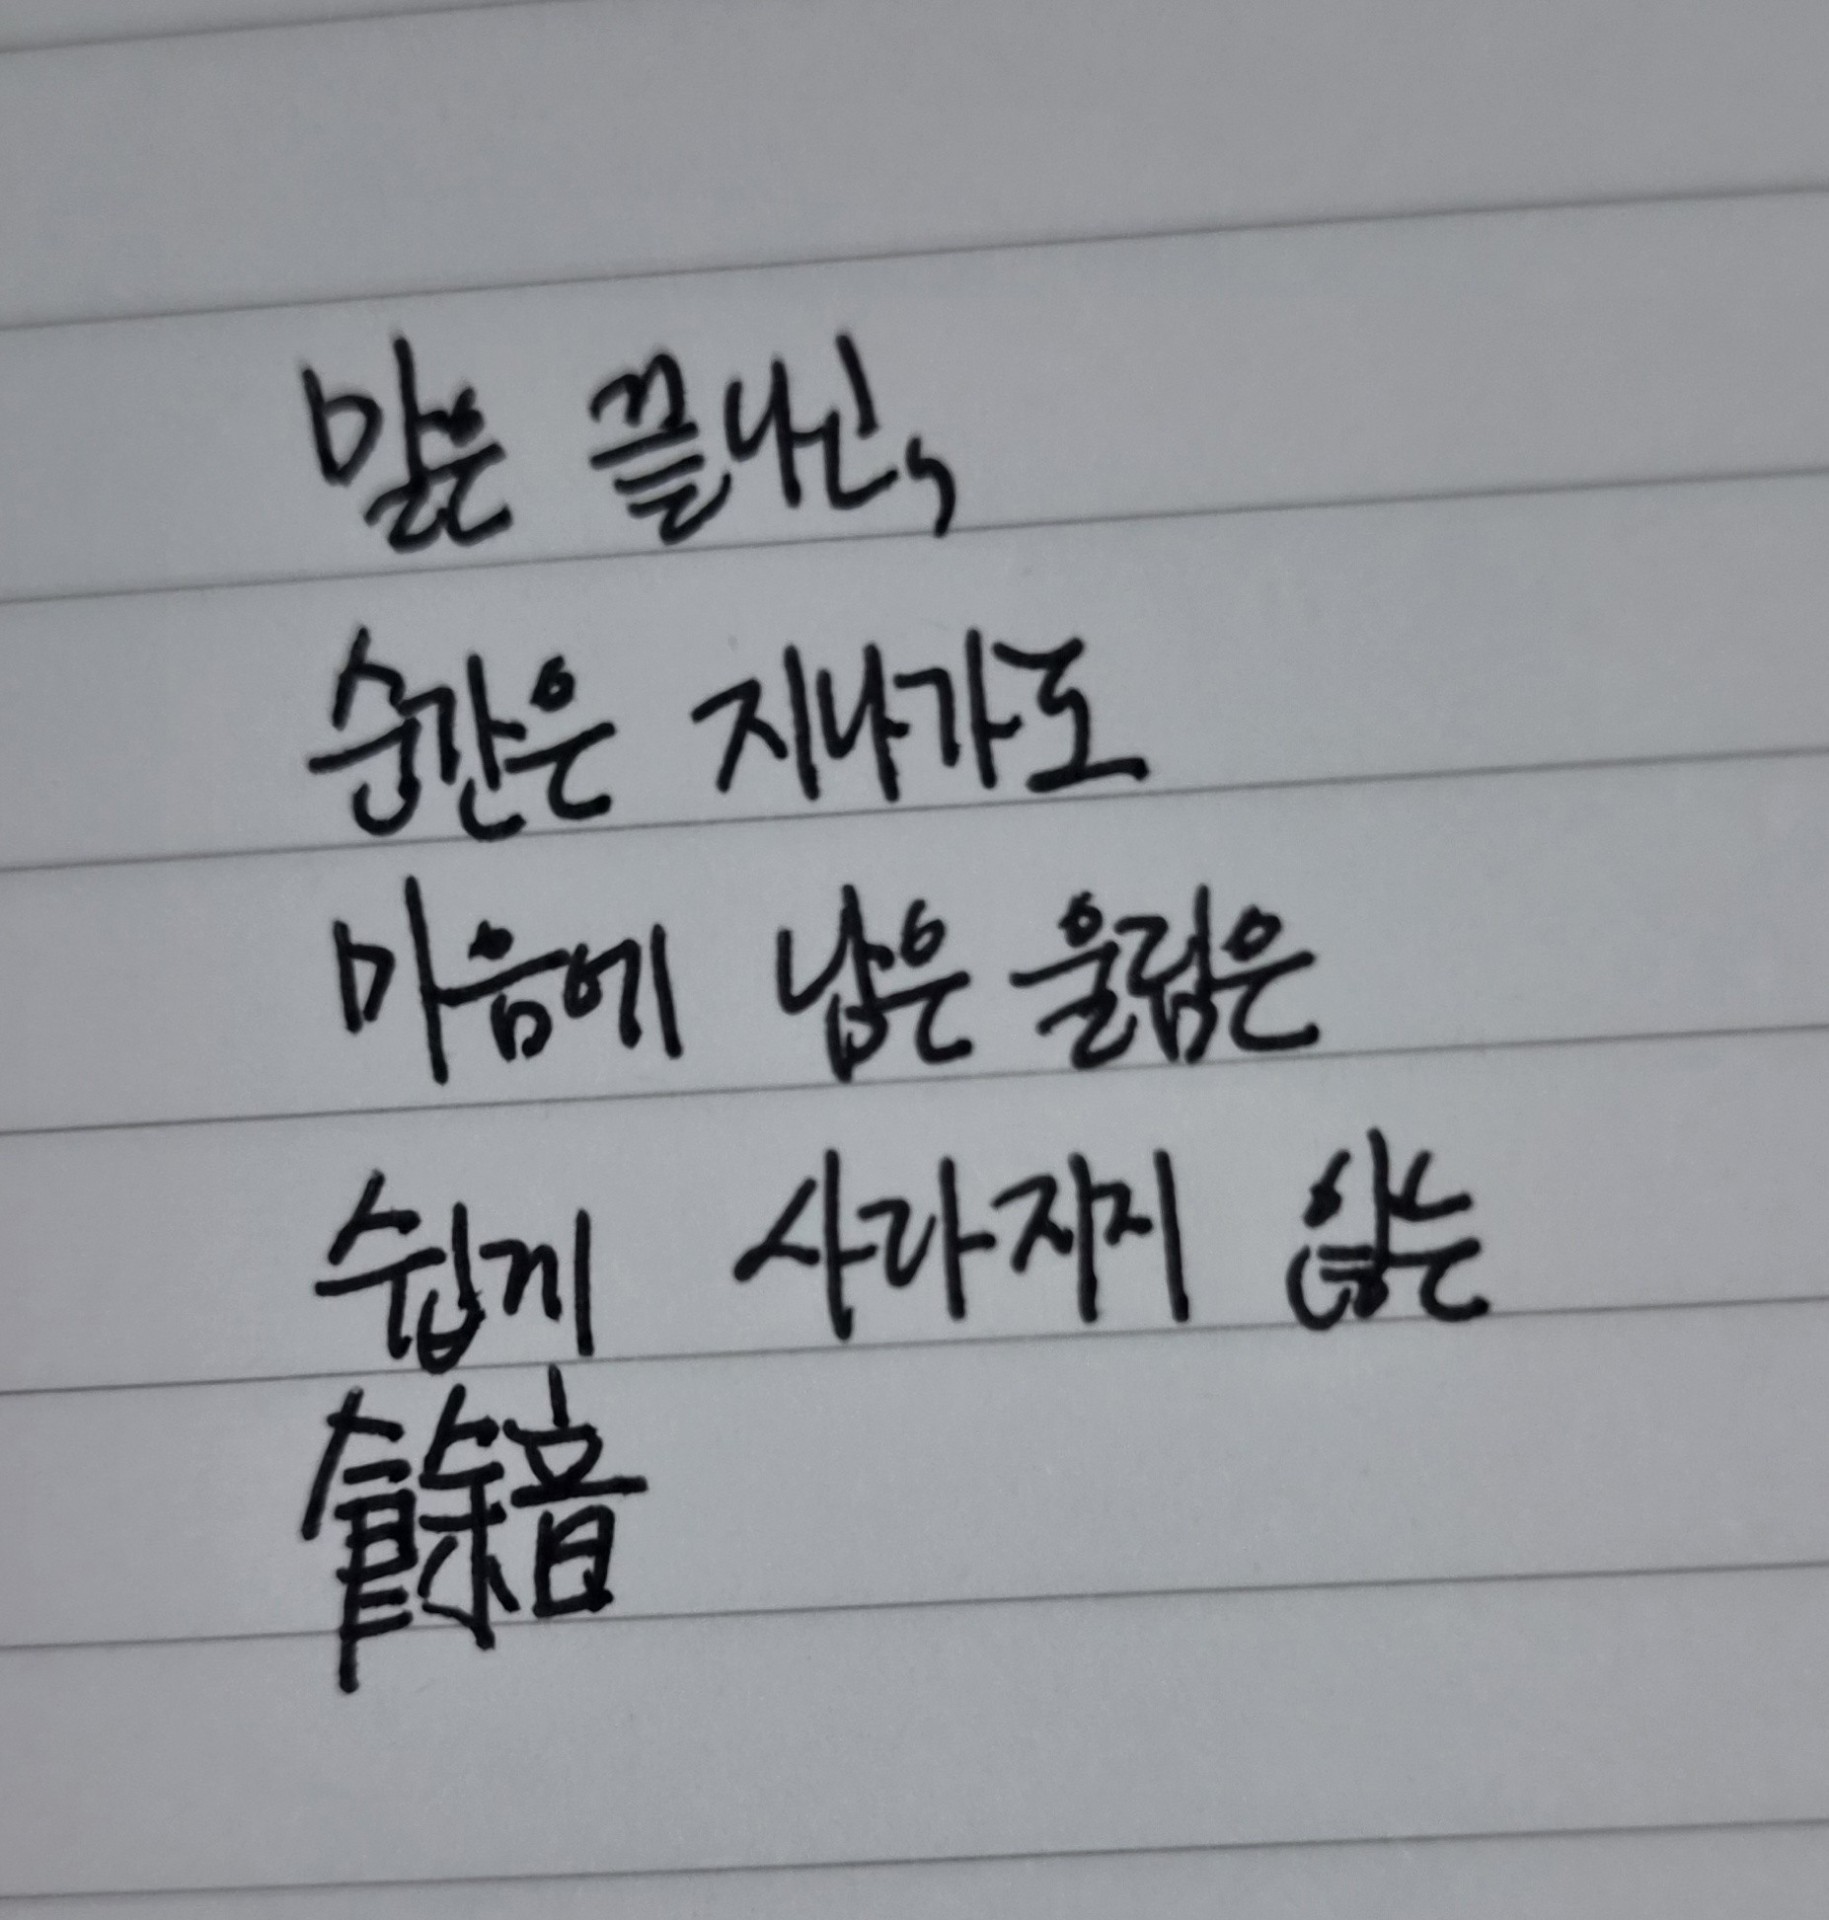 말은 끝나고,
순간은 지나가도
마음에 남은 울림은
쉽게 사라지지 않는
餘音